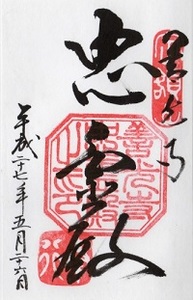 善光寺
忠霊殿
平成二十七年五月二十六日